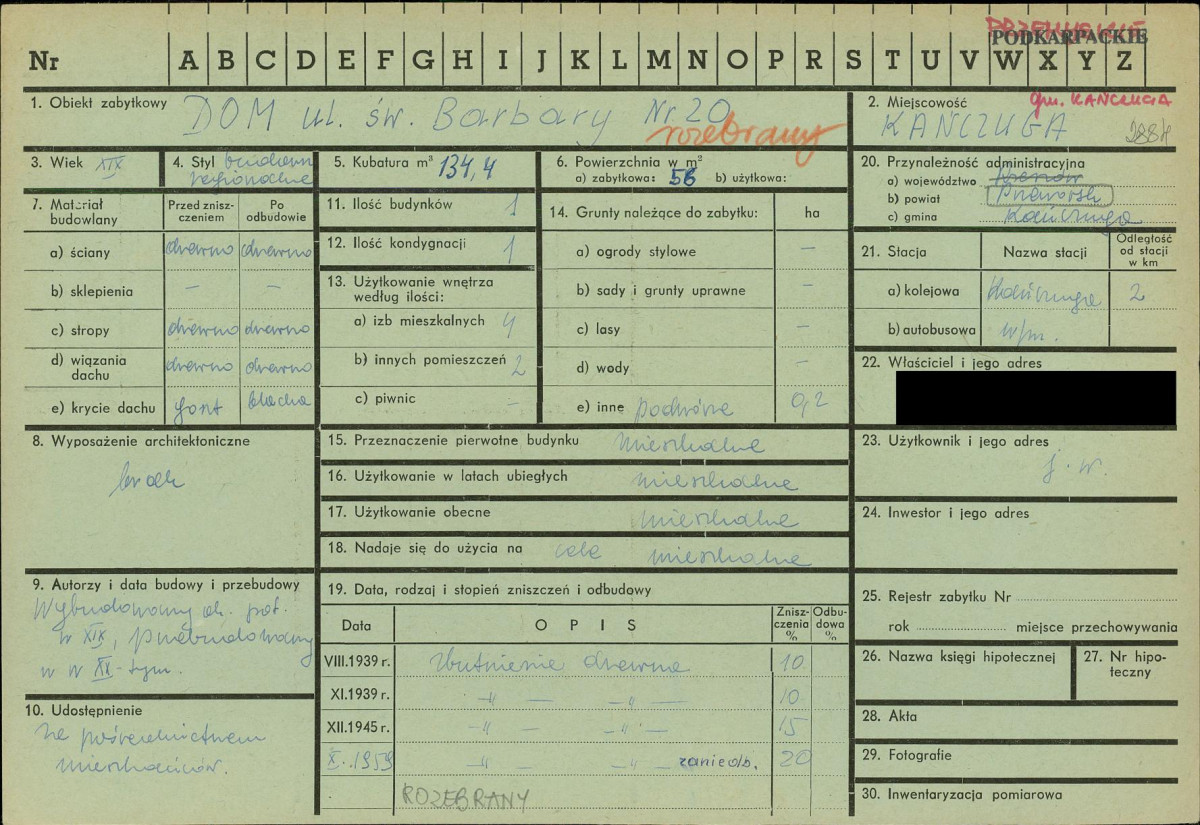 PRZEMYSKIE
PODKARPACKIE
Nr A B C D E F G H I J K L M N O P R S T U V W X Y Z
1. Obiekt zabytkowy DOM ul. św. Barbary Nr 20
rozebrany
2. Miejscowość gm. KAŃCZUGA
KAŃCZUGA 2884
3. Wiek XIX
4. Styl budown.
regionalne
5. Kubatura m³ 134,4
6. Powierzchnia w m²
a) zabytkowa: 56 b) użytkowa:
7. Materiał budowlany Przed zniszczeniem Po odbudowie
a) ściany drewno drewno
b) sklepienia — —
c) stropy drewno drewno
d) wiązania dachu drewno drewno
e) krycie dachu gont blacha
8. Wyposażenie architektoniczne
brak
9. Autorzy i data budowy i przebudowy
Wybudowany ok. poł.
w XIX, przebudowany
w w XX-tym.
10. Udostępnienie
za pośrednictwem
mieszkańców.
11. Ilość budynków 1
12. Ilość kondygnacji 1
13. Użytkowanie wnętrza
według ilości:
a) izb mieszkalnych 4
b) innych pomieszczeń 2
c) piwnic —
14. Grunty należące do zabytku: ha
a) ogrody stylowe —
b) sady i grunty uprawne —
c) lasy —
d) wody —
e) inne podwórze 0,2
15. Przeznaczenie pierwotne budynku mieszkalne
16. Użytkowanie w latach ubiegłych mieszkalne
17. Użytkowanie obecne mieszkalne
18. Nadaje się do użycia na cele mieszkalne
19. Data, rodzaj i stopień zniszczeń i odbudowy
Data OPIS Zniszczenia % Odbudowa %
VIII.1939 r. Zbutwienie drewna 10
XI.1939 r. —„— —„— 10
XII.1945 r. —„— —„— 15
X.1959 —„— —„— zaniedb. 20
ROZEBRANY
20. Przynależność administracyjna
a) województwo
b) powiat Przeworsk
c) gmina Kańczuga
21. Stacja Nazwa stacji Odległość od stacji w km
a) kolejowa Kańczuga 2
b) autobusowa w/m.
22. Właściciel i jego adres
23. Użytkownik i jego adres
j. w.
24. Inwestor i jego adres
25. Rejestr zabytku Nr
rok miejsce przechowywania
26. Nazwa księgi hipotecznej
27. Nr hipoteczny
28. Akta
29. Fotografie
30. Inwentaryzacja pomiarowa